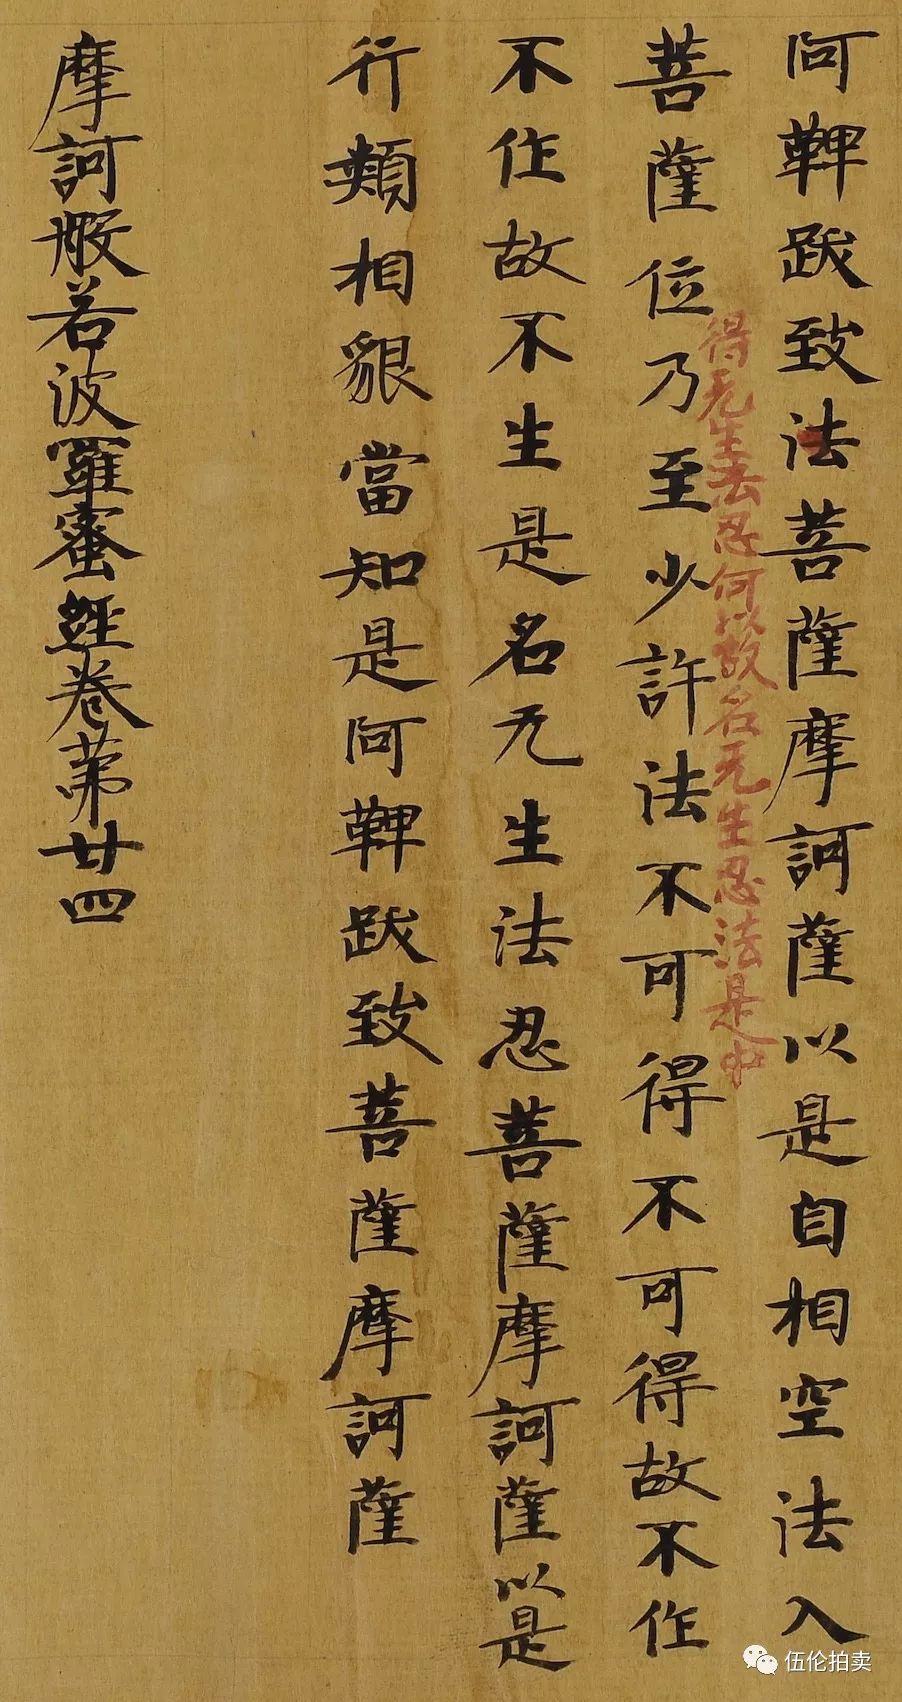 阿鞞跋致法菩薩摩訶薩以是自相空法入
得无生法忍何以故名无生忍法是中
菩薩位乃至少許法不可得不可得故不作
不作故不生是名无生法忍菩薩摩訶薩以是
行類相貌當知是阿鞞跋致菩薩摩訶薩
摩訶般若波羅蜜經卷第廿四
伍伦拍卖